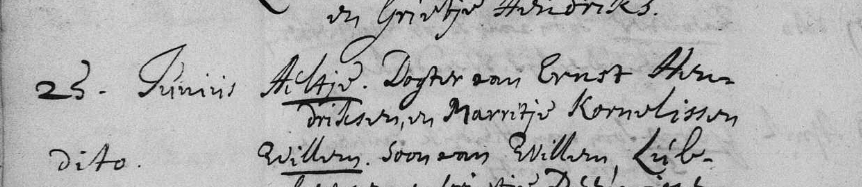 en Grietje Hendriks.
25. Junius Aeltje. Dogter van Ernst Hen-
driksen, en Marritje Kornelissen
dito. Willem. Soon van Willem Lub-